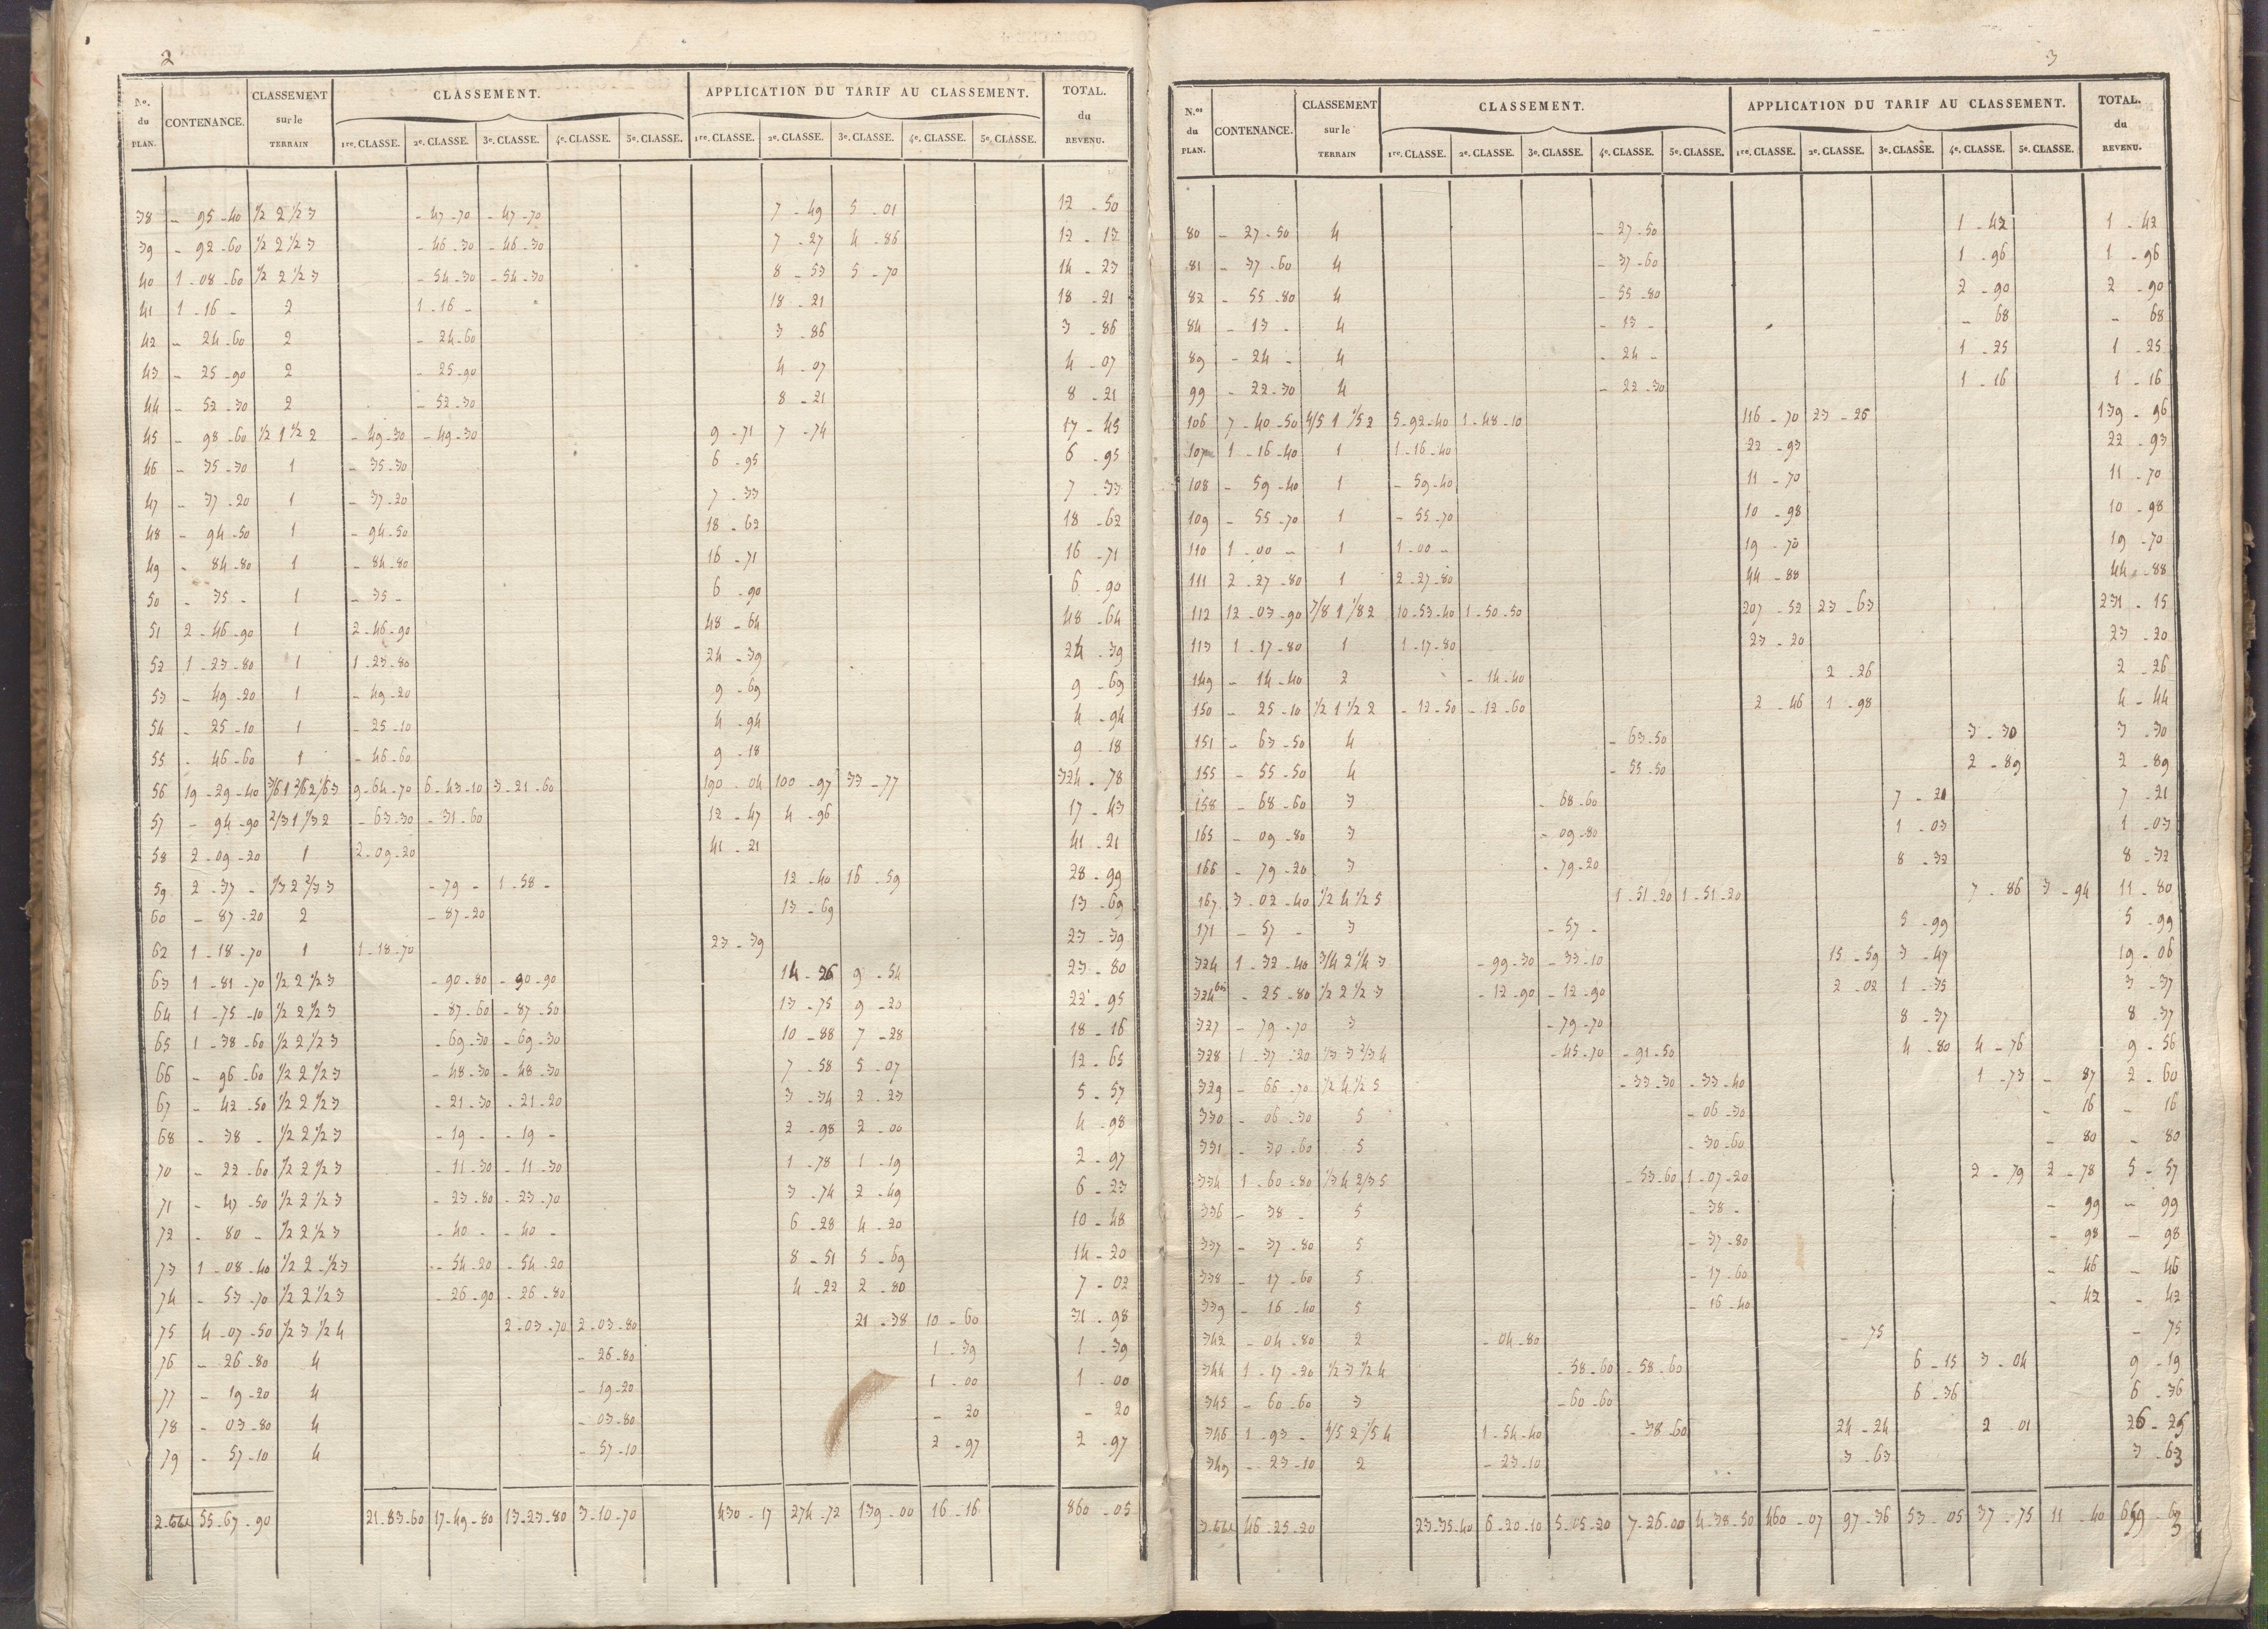 2
No. du PLAN. CONTENANCE. CLASSEMENT sur le TERRAIN CLASSEMENT. APPLICATION DU TARIF AU CLASSEMENT. TOTAL. du REVENU.
1re. CLASSE. 2e. CLASSE. 3e. CLASSE. 4e. CLASSE. 5e. CLASSE. 1re. CLASSE. 2e. CLASSE. 3e. CLASSE. 4e. CLASSE. 5e. CLASSE.
38 - 95-40 1/2 2 1/2 3 - 47-70 - 47-70 7-49 5-01 12-50
39 - 92-60 1/2 2 1/2 3 - 46-30 - 46-30 7-27 4-86 12-13
40 1-08-60 1/2 2 1/2 3 - 54-30 - 54-30 8-53 5-70 14-23
41 1-16- 2 1-16- 18-21 18-21
42 - 24-60 2 - 24-60 3-86 3-86
43 - 25-90 2 - 25-90 4-07 4-07
44 - 52-30 2 - 52-30 8-21 8-21
45 - 98-60 1/2 1 1/2 2 - 49-30 - 49-30 9-71 7-74 17-45
46 - 35-30 1 - 35-30 6-95 6-95
47 - 37-20 1 - 37-20 7-33 7-33
48 - 94-50 1 - 94-50 18-62 18-62
49 - 84-80 1 - 84-80 16-71 16-71
50 - 35- 1 - 35- 6-90 6-90
51 2-46-90 1 2-46-90 48-64 48-64
52 1-23-80 1 1-23-80 24-39 24-39
53 - 49-20 1 - 49-20 9-69 9-69
54 - 25-10 1 - 25-10 4-94 4-94
55 - 46-60 1 - 46-60 9-18 9-18
56 19-29-40 3/6 1 2/6 2 1/6 3 9-64-70 6-43-10 3-21-60 190-04 100-97 33-77 324-78
57 - 94-90 2/3 1 1/3 2 - 63-30 - 31-60 12-47 4-96 17-43
58 2-09-20 1 2-09-20 41-21 41-21
59 2-37- 1/3 2 2/3 3 - 79- 1-58- 12-40 16-59 28-99
60 - 87-20 2 - 87-20 13-69 13-69
62 1-18-70 1 1-18-70 23-39 23-39
63 1-81-70 1/2 2 1/2 3 - 90-80 - 90-90 14-26 9-54 23-80
64 1-75-10 1/2 2 1/2 3 - 87-60 - 87-50 13-75 9-20 22-95
65 1-38-60 1/2 2 1/2 3 - 69-30 - 69-30 10-88 7-28 18-16
66 - 96-60 1/2 2 1/2 3 - 48-30 - 48-30 7-58 5-07 12-65
67 - 42-50 1/2 2 1/2 3 - 21-30 - 21-20 3-34 2-23 5-57
68 - 38- 1/2 2 1/2 3 - 19- - 19- 2-98 2-00 4-98
70 - 22-60 1/2 2 1/2 3 - 11-30 - 11-30 1-78 1-19 2-97
71 - 47-50 1/2 2 1/2 3 - 23-80 - 23-70 3-74 2-49 6-23
72 - 80- 1/2 2 1/2 3 - 40- - 40- 6-28 4-20 10-48
73 1-08-40 1/2 2 1/2 3 - 54-20 - 54-20 8-51 5-69 14-20
74 - 53-70 1/2 2 1/2 3 - 26-90 - 26-80 4-22 2-80 7-02
75 4-07-50 1/2 3 1/2 4 2-03-70 2-03-80 21-38 10-60 31-98
76 - 26-80 4 - 26-80 1-39 1-39
77 - 19-20 4 - 19-20 1-00 1-00
78 - 03-80 4 - 03-80 - 20 - 20
79 - 57-10 4 - 57-10 2-97 2-97
55-67-90 21-83-60 17-49-80 13-23-80 3-10-70 430-17 274-72 139-00 16-16 860-05
3
N.os du PLAN. CONTENANCE. CLASSEMENT sur le TERRAIN CLASSEMENT. APPLICATION DU TARIF AU CLASSEMENT. TOTAL. du REVENU.
1re. CLASSE. 2e. CLASSE. 3e. CLASSE. 4e. CLASSE. 5e. CLASSE. 1re. CLASSE. 2e. CLASSE. 3e. CLASSE. 4e. CLASSE. 5e. CLASSE.
80 - 27-50 4 - 27-50 1-42 1-42
81 - 37-60 4 - 37-60 1-96 1-96
82 - 55-80 4 - 55-80 2-90 2-90
84 - 13- 4 - 13- - 68 - 68
89 - 24- 4 - 24- 1-25 1-25
99 - 22-30 4 - 22-30 1-16 1-16
106 7-40-50 4/5 1 1/5 2 5-92-40 1-48-10 116-70 23-26 139-96
107 1-16-40 1 1-16-40 22-93 22-93
108 - 59-40 1 - 59-40 11-70 11-70
109 - 55-70 1 - 55-70 10-98 10-98
110 1-00- 1 1-00- 19-70 19-70
111 2-27-80 1 2-27-80 44-88 44-88
112 12-03-90 7/8 1 1/8 2 10-53-40 1-50-50 207-52 23-63 231-15
113 1-17-80 1 1-17-80 23-20 23-20
149 - 14-40 2 - 14-40 2-26 2-26
150 - 25-10 1/2 1 1/2 2 - 12-50 - 12-60 2-46 1-98 4-44
151 - 63-50 4 - 63-50 3-30 3-30
155 - 55-50 4 - 55-50 2-89 2-89
158 - 68-60 3 - 68-60 7-21 7-21
165 - 09-80 3 - 09-80 1-03 1-03
166 - 79-20 3 - 79-20 8-32 8-32
167 3-02-40 1/2 4 1/2 5 1-51-20 1-51-20 7-86 3-94 11-80
171 - 57- 3 - 57- 5-99 5-99
324 1-32-40 3/4 2 1/4 3 - 99-30 - 33-10 15-59 3-47 19-06
324bis - 25-80 1/2 2 1/2 3 - 12-90 - 12-90 2-02 1-35 3-37
327 - 79-70 3 - 79-70 8-37 8-37
328 1-37-20 1/3 3 2/3 4 - 45-70 - 91-50 4-80 4-76 9-56
329 - 66-70 1/2 4 1/2 5 - 33-30 - 33-40 1-73 - 87 2-60
330 - 06-30 5 - 06-30 - 16 - 16
331 - 30-60 5 - 30-60 - 80 - 80
334 1-60-80 1/3 4 2/3 5 - 53-60 1-07-20 2-79 2-78 5-57
336 - 38- 5 - 38- - 99 - 99
337 - 37-80 5 - 37-80 - 98 - 98
338 - 17-60 5 - 17-60 - 46 - 46
339 - 16-40 5 - 16-40 - 42 - 42
342 - 04-80 2 - 04-80 - 75 - 75
344 1-17-20 1/2 3 1/2 4 - 58-60 - 58-60 6-15 3-04 9-19
345 - 60-60 3 - 60-60 6-36 6-36
346 1-93- 4/5 2 1/5 4 1-54-40 - 38-60 24-24 2-01 26-25
349 - 23-10 2 - 23-10 3-63 3-63
46-25-20 23-35-40 6-20-10 5-05-20 7-26-00 4-38-50 460-07 97-36 53-05 37-75 11-40 659-63